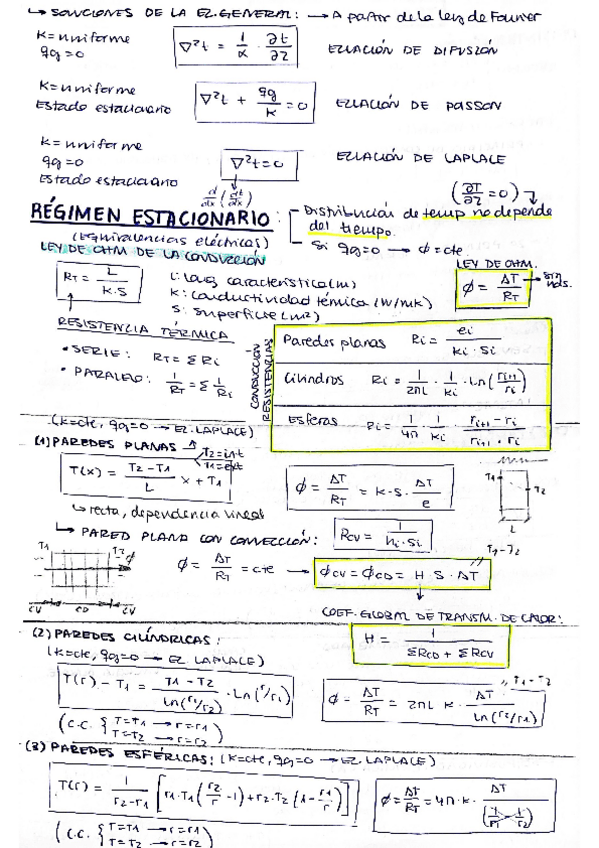 ↳ SOLUCIONES DE LA EZ. GENERAL: → A partir de la ley de Fourier
K = uniforme
qg = 0
∇²t = 1/α · ∂t/∂z
EZUACIÓN DE DIFUSIÓN
K = uniforme
Estado estacionario
∇²t + qg/K = 0
EZUACIÓN DE POISSON
K = uniforme
qg = 0
Estado estacionario
∇²t = 0
EZUACIÓN DE LAPLACE
d/dx (dt/dx)
(∂T/∂z = 0)
RÉGIMEN ESTACIONARIO:
- Distribución de temp no depende
del tiempo.
- Si qg=0 → ϕ = cte.
(Equivalencias eléctricas)
LEY DE OHM DE LA CONDUCCIÓN
RT = L / K·S
L: Long característica (m)
K: Conductividad térmica (W/mK)
S: Superficie (m²)
LEY DE OHM.
ϕ = ΔT / RT
RESISTENCIA TÉRMICA
• SERIE: RT = Σ Ri
• PARALELO: 1/RT = Σ 1/Ri
CONDUCCIÓN
RESISTENCIAS
Paredes planas Ri = ei / ki · Si
Cilindros Ri = 1/2πL · 1/ki · Ln (ri+1/ri)
Esferas Ri = 1/4π · 1/ki · ri+1 - ri / ri+1 · ri
(K=cte, qg=0 → EZ. LAPLACE)
(1) PAREDES PLANAS
T2 = int
T1 = ext
T(x) = T2 - T1 / L x + T1
↳ recta, dependencia lineal
ϕ = ΔT/RT = K·S· ΔT/e
T1
T2
L
↳ PARED PLANA CON CONVECCIÓN:
RCV = 1 / hi·Si
T1 T2 ϕ
CV CD CV
ϕ = ΔT/RT = cte → ϕCV = ϕCD = H S · ΔT
T1-T2
COEF. GLOBAL DE TRANSM. DE CALOR:
H = 1 / ΣRCD + ΣRCV
(2) PAREDES CILÍNDRICAS:
(K=cte, qg=0 → EZ. LAPLACE)
T(r) - T1 = T1 - T2 / Ln(r1/r2) · Ln(r/r1)
T1-T2
ϕ = ΔT/RT = 2πL K · ΔT / Ln(r2/r1)
(C.C. { T=T1 → r=r1
T=T2 → r=r2 )
(3) PAREDES ESFÉRICAS: (K=cte, qg=0 → EZ. LAPLACE)
T(r) = 1/r2-r1 [r1·T1 (r2/r - 1) + r2·T2 (1 - r1/r)]
ϕ = ΔT/RT = 4π·K· ΔT / (1/r1 - 1/r2)
(C.C. { T=T1 → r=r1
T=T2 → r=r2 )